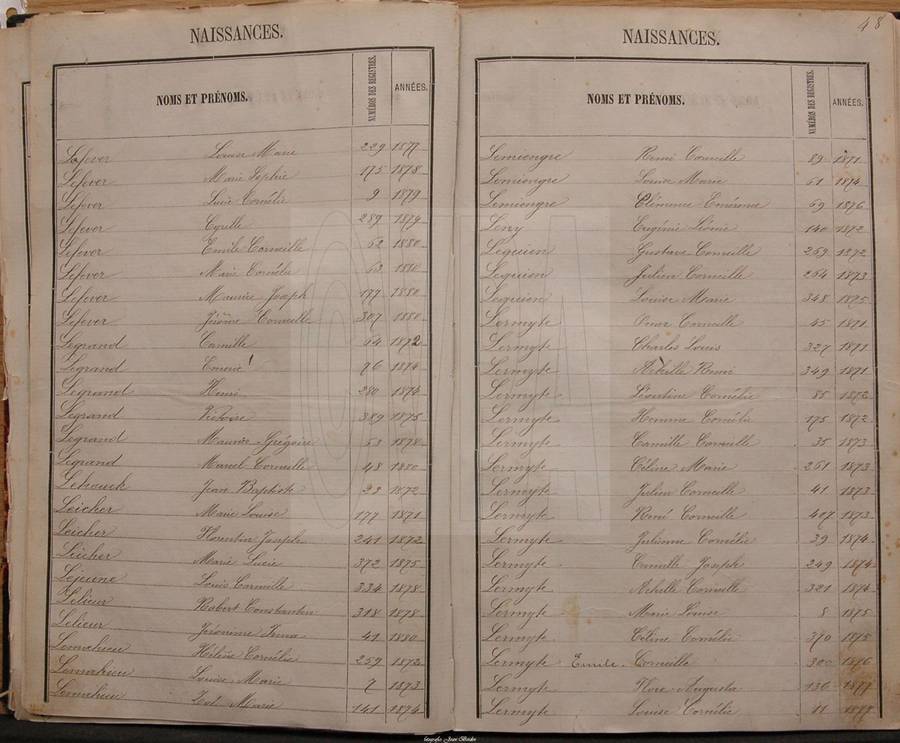 NAISSANCES.
NOMS ET PRÉNOMS. NUMÉROS DES REGISTRES. ANNÉES.
Lefever Louise Marie 229 1877
Lefever Marie Sophie 175 1878
Lefever Lucie Cornélie 9 1879
Lefever Cyrille 289 1879
Lefever Emile Corneille 62 1880
Lefever Marie Cornélie 63 1880
Lefever Maurice Joseph 177 1880
Lefever Jérôme Corneille 307 1880
Legrand Camille 14 1872
Legrand 96 1874
Legrand Henri 280 1874
Legrand Victoire 389 1875
Legrand Maurice Grégoire 53 1878
Legrand Marcel Corneille 48 1880
Lehouck Jean Baptiste 23 1872
Leicher Marie Louise 177 1871
Leicher Florentin Joseph 241 1872
Leicher Marie Lucie 372 1875
Lejeune Louis Corneille 334 1878
Lelieur Robert Constantin 318 1878
Lelieur Jéromine Irma 41 1880
Lemahieu Hélène Cornélie 259 1872
Lemahieu Louise Marie 7 1873
Lemahieu Zoé Marie 141 1874
48
NAISSANCES.
NOMS ET PRÉNOMS. NUMÉROS DES REGISTRES. ANNÉES.
Lemiengre Remi Corneille 89 1871
Lemiengre Louise Marie 61 1874
Lemiengre Clémence Emérence 69 1876
Leny Eugénie Léonie 140 1872
Lequien Gustave Corneille 269 1872
Lequien Julien Corneille 264 1873
Lequien Louise Marie 348 1875
Lermyte Omer Corneille 45 1871
Lermyte Charles Louis 327 1871
Lermyte Achille Remi 349 1871
Lermyte Léontine Cornélie 85 1872
Lermyte Cornélie 175 1872
Lermyte Camille Corneille 35 1873
Lermyte Céline Marie 261 1873
Lermyte Julien Corneille 41 1873
Lermyte René Corneille 407 1873
Lermyte Julienne Cornélie 39 1874
Lermyte Camille Joseph 249 1874
Lermyte Achille Corneille 321 1874
Lermyte Marie Louise 8 1875
Lermyte Céline Cornélie 370 1875
Lermyte Emile Corneille 300 1876
Lermyte Flore Augusta 136 1877
Lermyte Louise Cornélie 11 1878